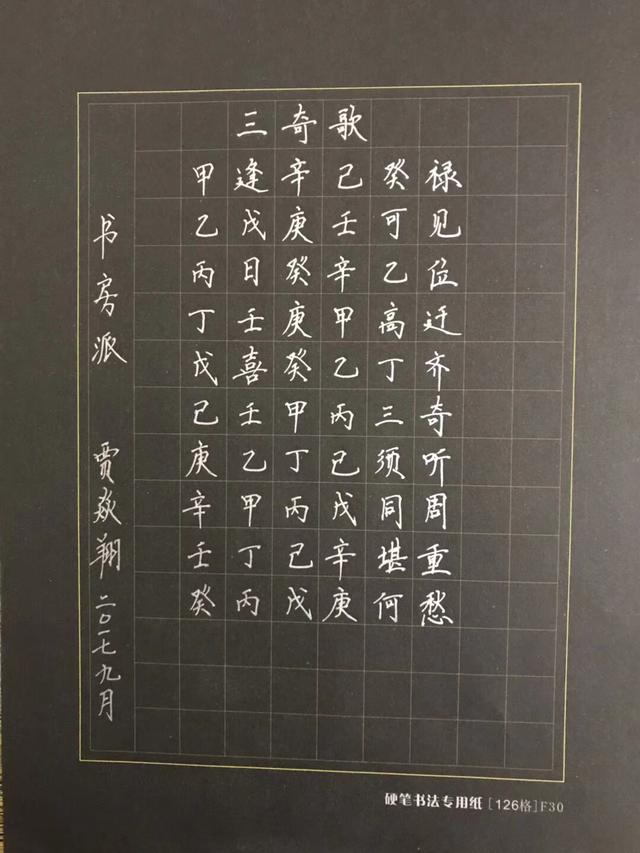 三奇歌
甲逢辛己癸禄
乙戊庚壬可见
丙日癸辛乙位
丁壬庚甲高迁
戊喜癸乙丁齐
己壬甲丙三奇
庚乙丁己须听
辛甲丙戊同周
壬丁己辛堪重
癸丙戊庚何愁
书房派 贾焱翔 二〇一七九月
硬笔书法专用纸 [126格]F30